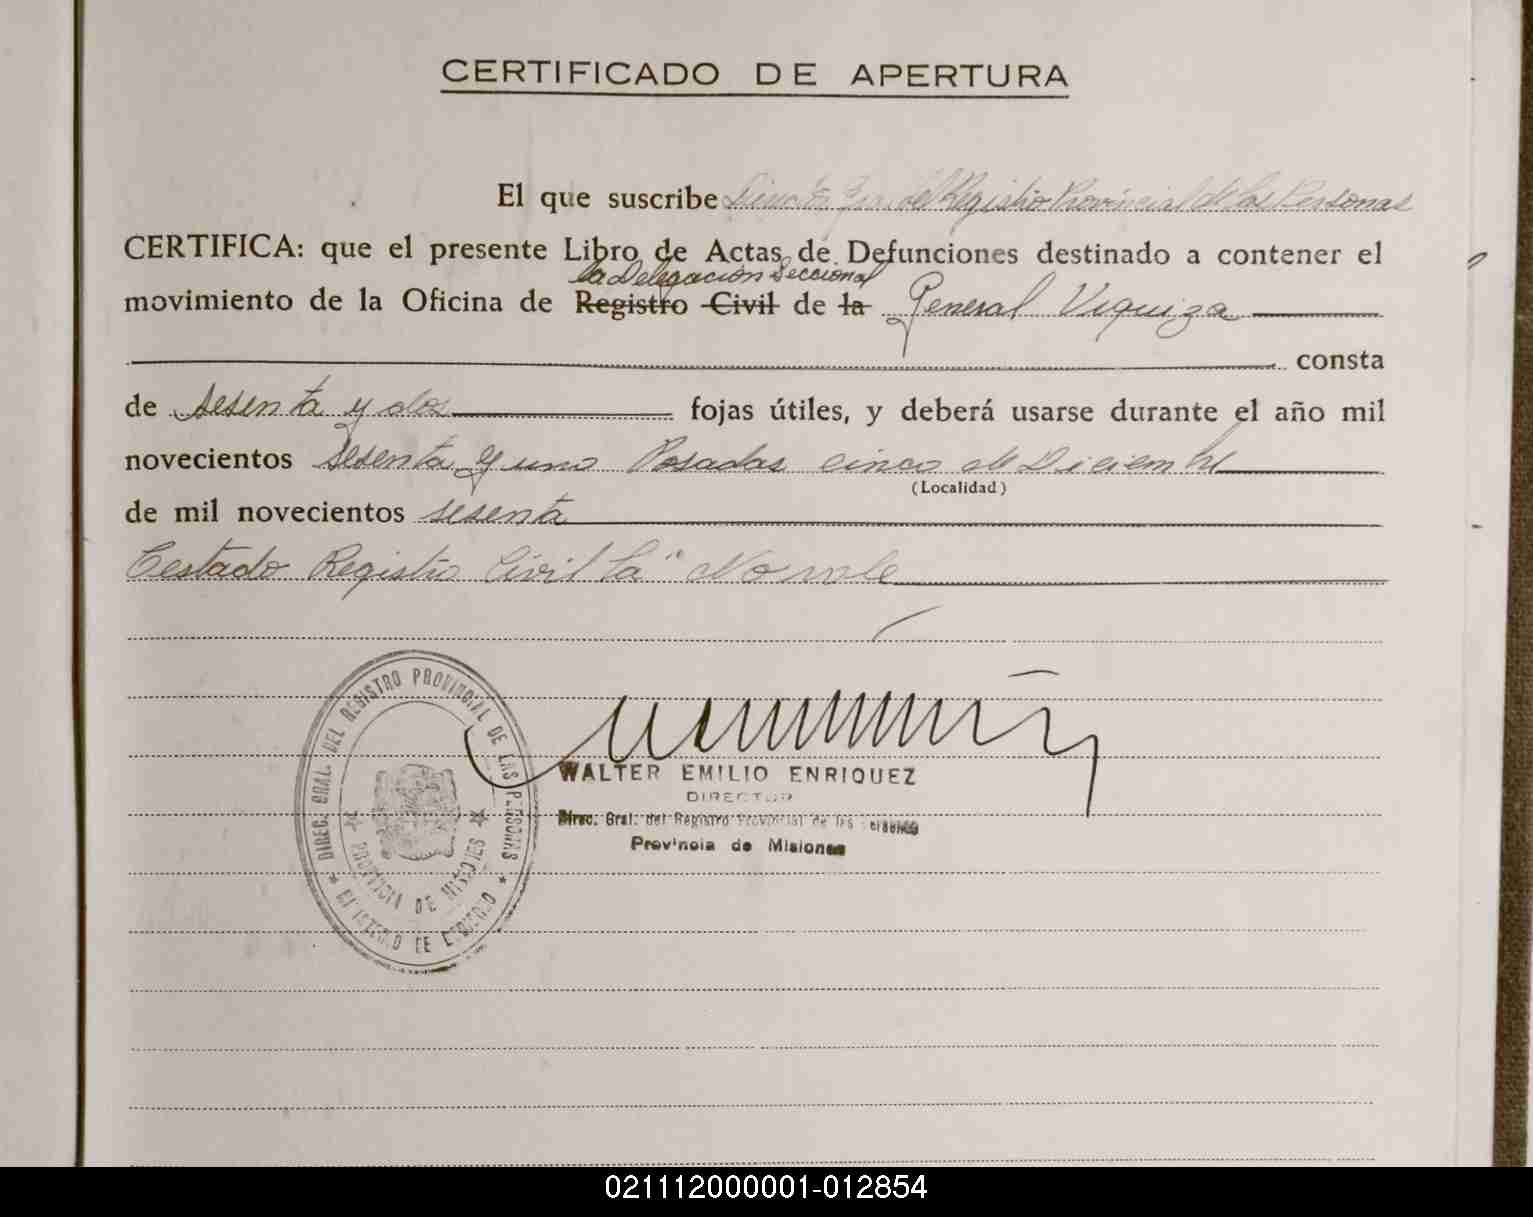 CERTIFICADO DE APERTURA
El que suscribe Director Gral. del Registro Provincial de las Personas
CERTIFICA: que el presente Libro de Actas de Defunciones destinado a contener el
la Delegación Seccional
movimiento de la Oficina de Registro Civil de la General Urquiza
consta
de sesenta y dos fojas útiles, y deberá usarse durante el año mil
novecientos sesenta y uno Posadas cinco de Diciembre
(Localidad)
de mil novecientos sesenta
Testado Registro Civil la" No vale
DIREC. GRAL. DEL REGISTRO PROVINCIAL DE LAS PERSONAS
PROVINCIA DE MISIONES
MINISTERIO DE GOBIERNO
WALTER EMILIO ENRIQUEZ
DIRECTOR
Direc. Gral. del Registro Provincial de las Personas
Provincia de Misiones
021112000001-012854